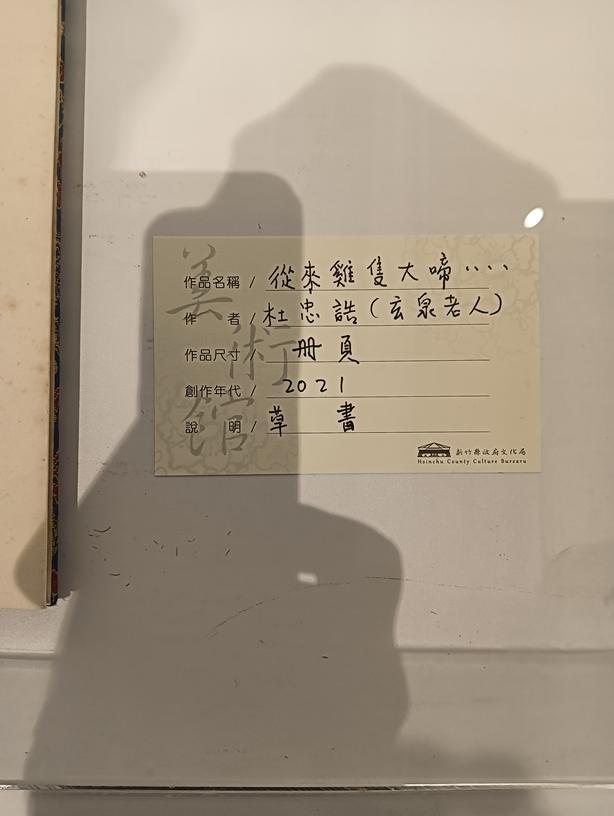 美術館
作品名稱 / 從來雞隻大啼、、、、
作者 / 杜忠誥（玄泉老人）
作品尺寸 / 冊頁
創作年代 / 2021
說明 / 草書
新竹縣政府文化局
Hsinchu County Culture Bureau